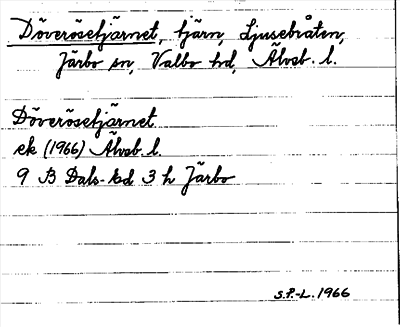 Döverösetjärnet, tjärn, Ljusebråten,
Järbo sn, Valbo hd, Älvsb. l.
Döverösetjärnet
ek (1966) Älvsb. l.
9 B Dals-Ed 3 h Järbo
S.P.-L. 1966